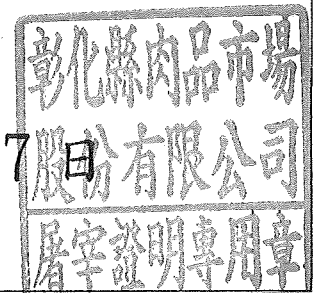 彰化縣肉品市場
股份有限公司
7日
屠宰證明專用章